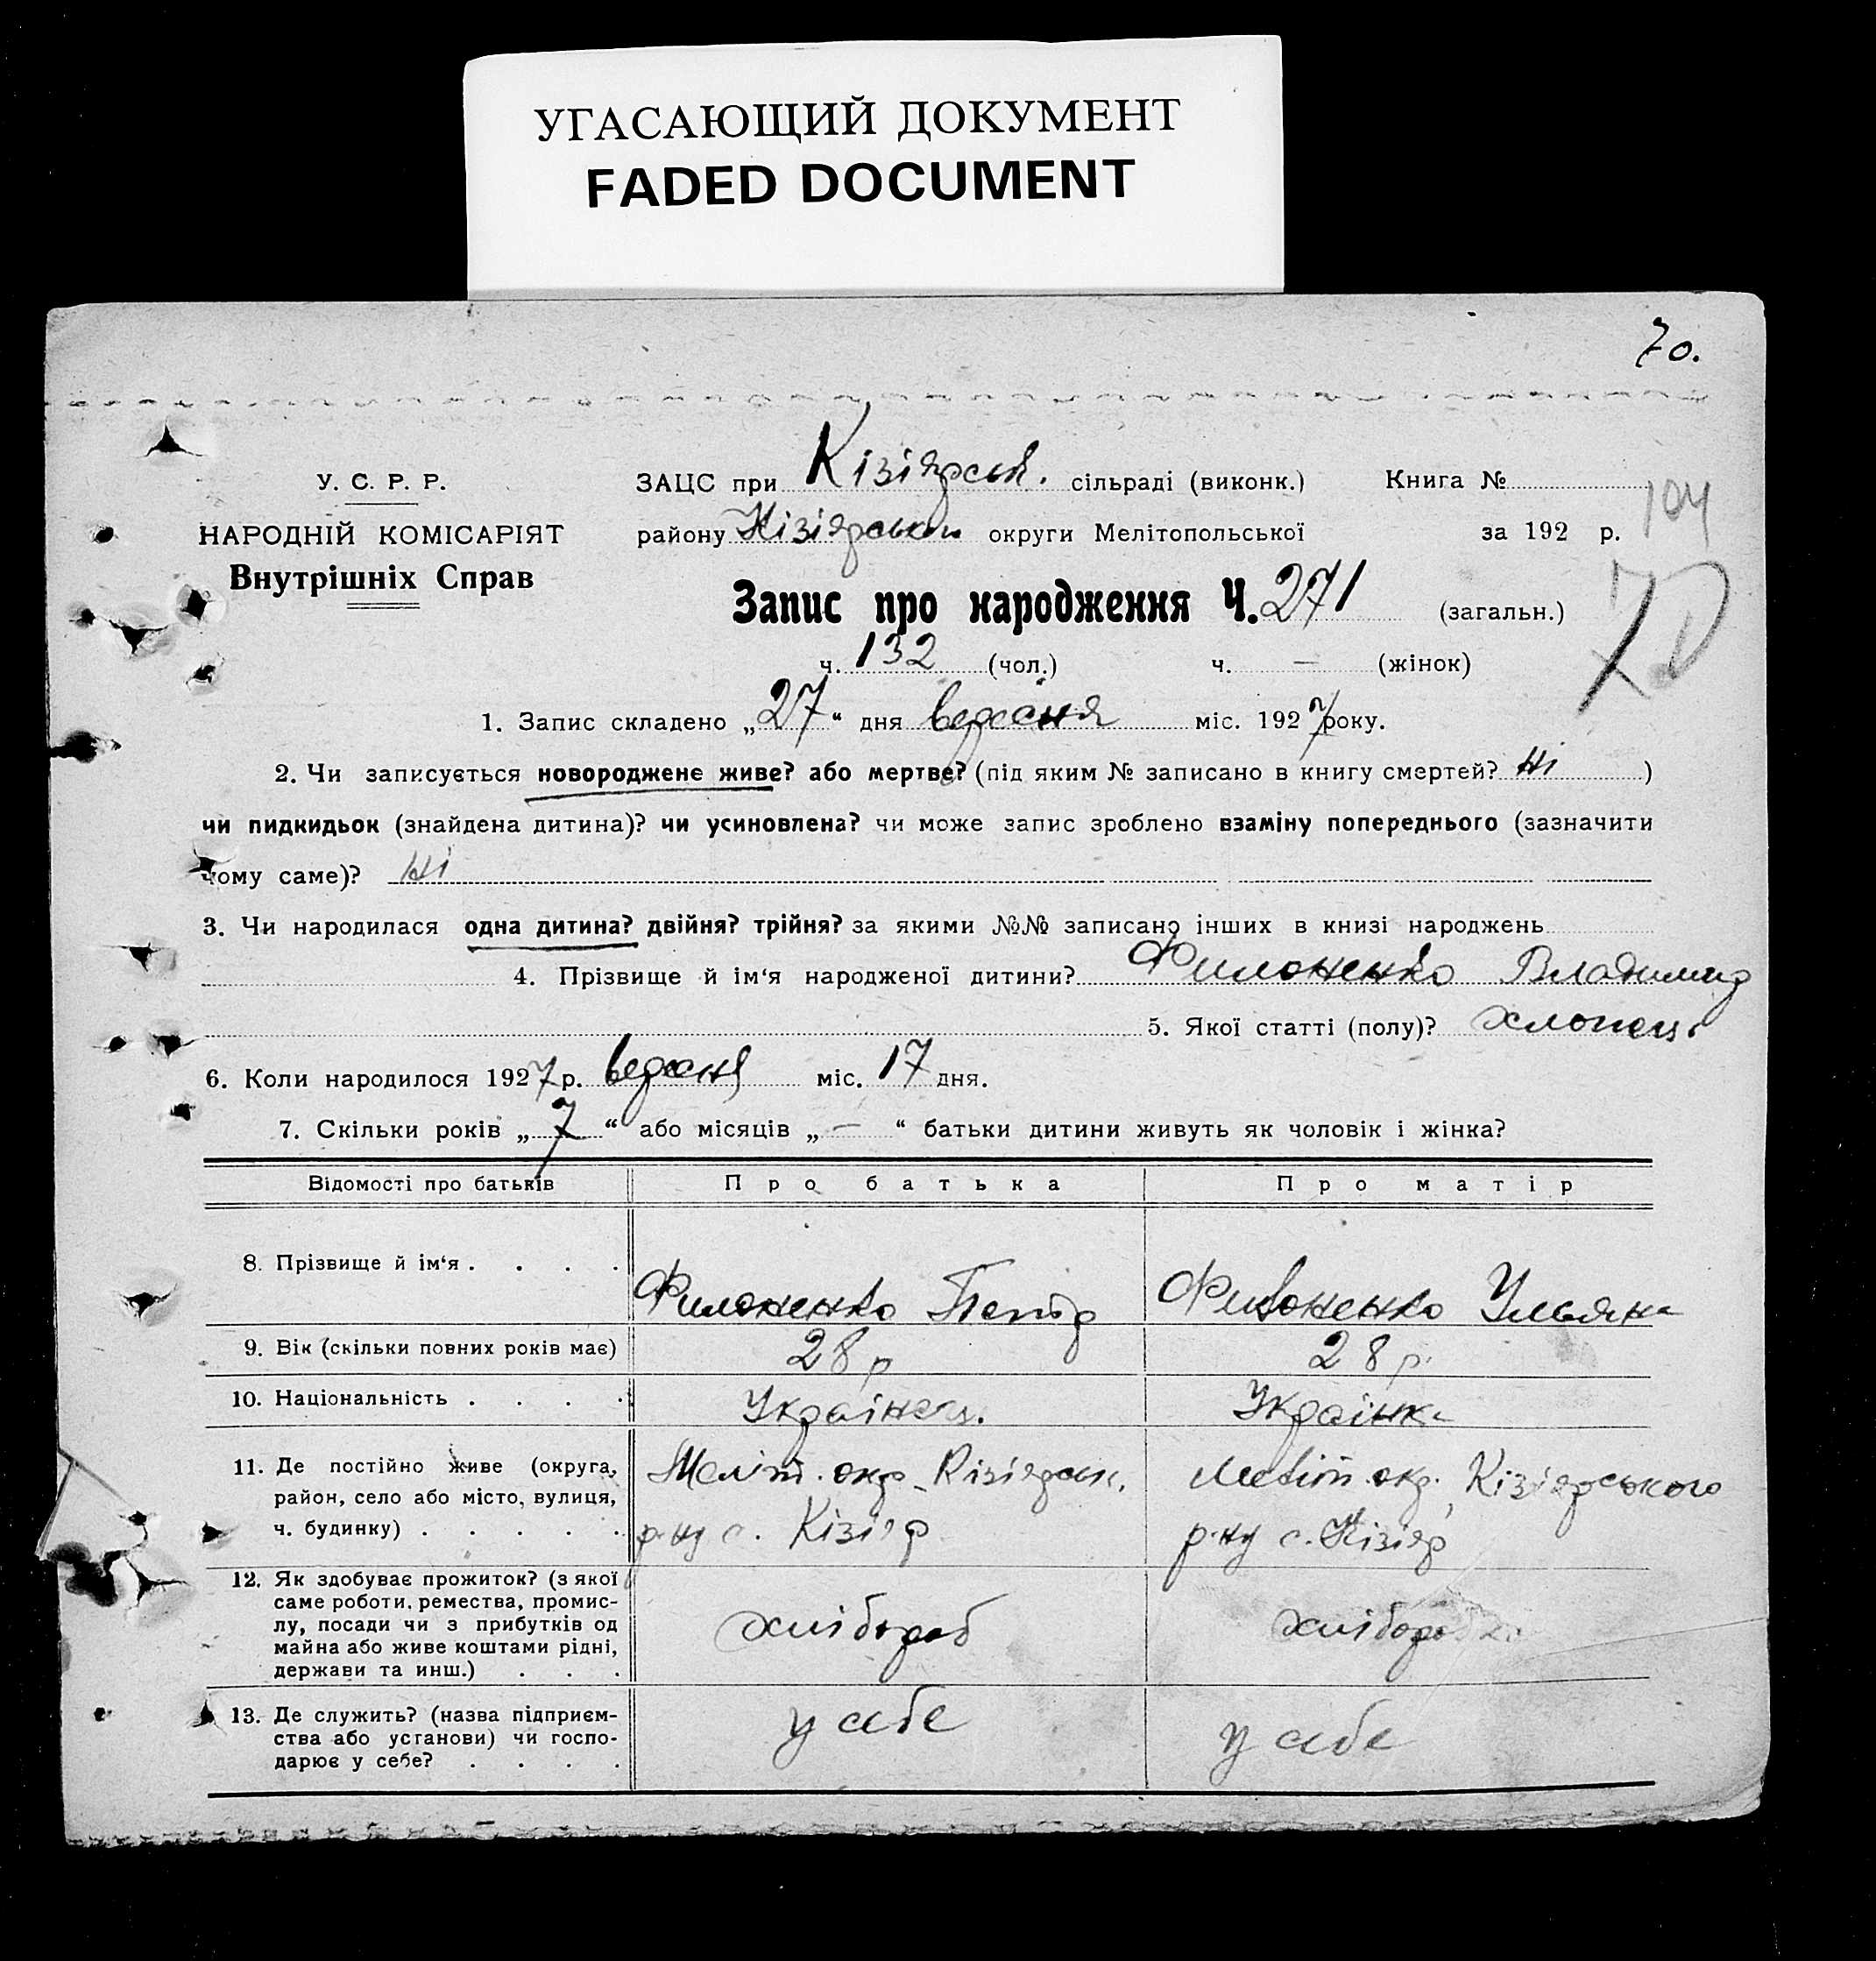 УГАСАЮЩИЙ ДОКУМЕНТ
FADED DOCUMENT
70.
У. С. Р. Р.
НАРОДНІЙ КОМІСАРІЯТ
Внутрішніх Справ
ЗАЦС при Кізіярськ. сільраді (виконк.) Книга №
104
району Кізіярськ округи Мелітопольської за 192 р.
Запис про народження Ч. 271 (загальн.)
70
ч. 132 (чол.) ч. — (жінок)
1. Запис складено „27“ дня вересня міс. 1927 року.
2. Чи записується новороджене живе? або мертве? (під яким № записано в книгу смертей? Ні )
чи пидкидьок (знайдена дитина)? чи усиновлена? чи може запис зроблено взаміну попереднього (зазначити
чому саме)? Ні
3. Чи народилася одна дитина? двійня? трійня? за якими №№ записано інших в книзі народжень
4. Прізвище й ім‘я народженої дитини? Филоненко Владимир
5. Якої статті (полу)? хлопець
6. Коли народилося 1927 р. вересня міс. 17 дня.
7. Скільки років „7“ або місяців „—“ батьки дитини живуть як чоловік і жінка?
Відомості про батьків Про батька Про матір
8. Прізвище й ім‘я . . . . Филоненко Петр Филоненко Ульяна
9. Вік (скільки повних років має) 28 р 28 р.
10. Національність . . . . Українець. Українка
11. Де постійно живе (округа,
район, село або місто, вулиця,
ч. будинку) . . . . .
Меліт. окр. Кізіярськ.
р-ну с. Кізіяр
Меліт. окр. Кізіярського
р-ну с. Кізіяр
12. Як здобуває прожиток? (з якої
саме роботи, ремества, промис-
лу, посади чи з прибутків од
майна або живе коштами рідні,
держави та инш.) . . .
хлібороб
13. Де служить? (назва підприєм-
ства або установи) чи госпо-
дарює у себе? . . . .
у себе
у себе